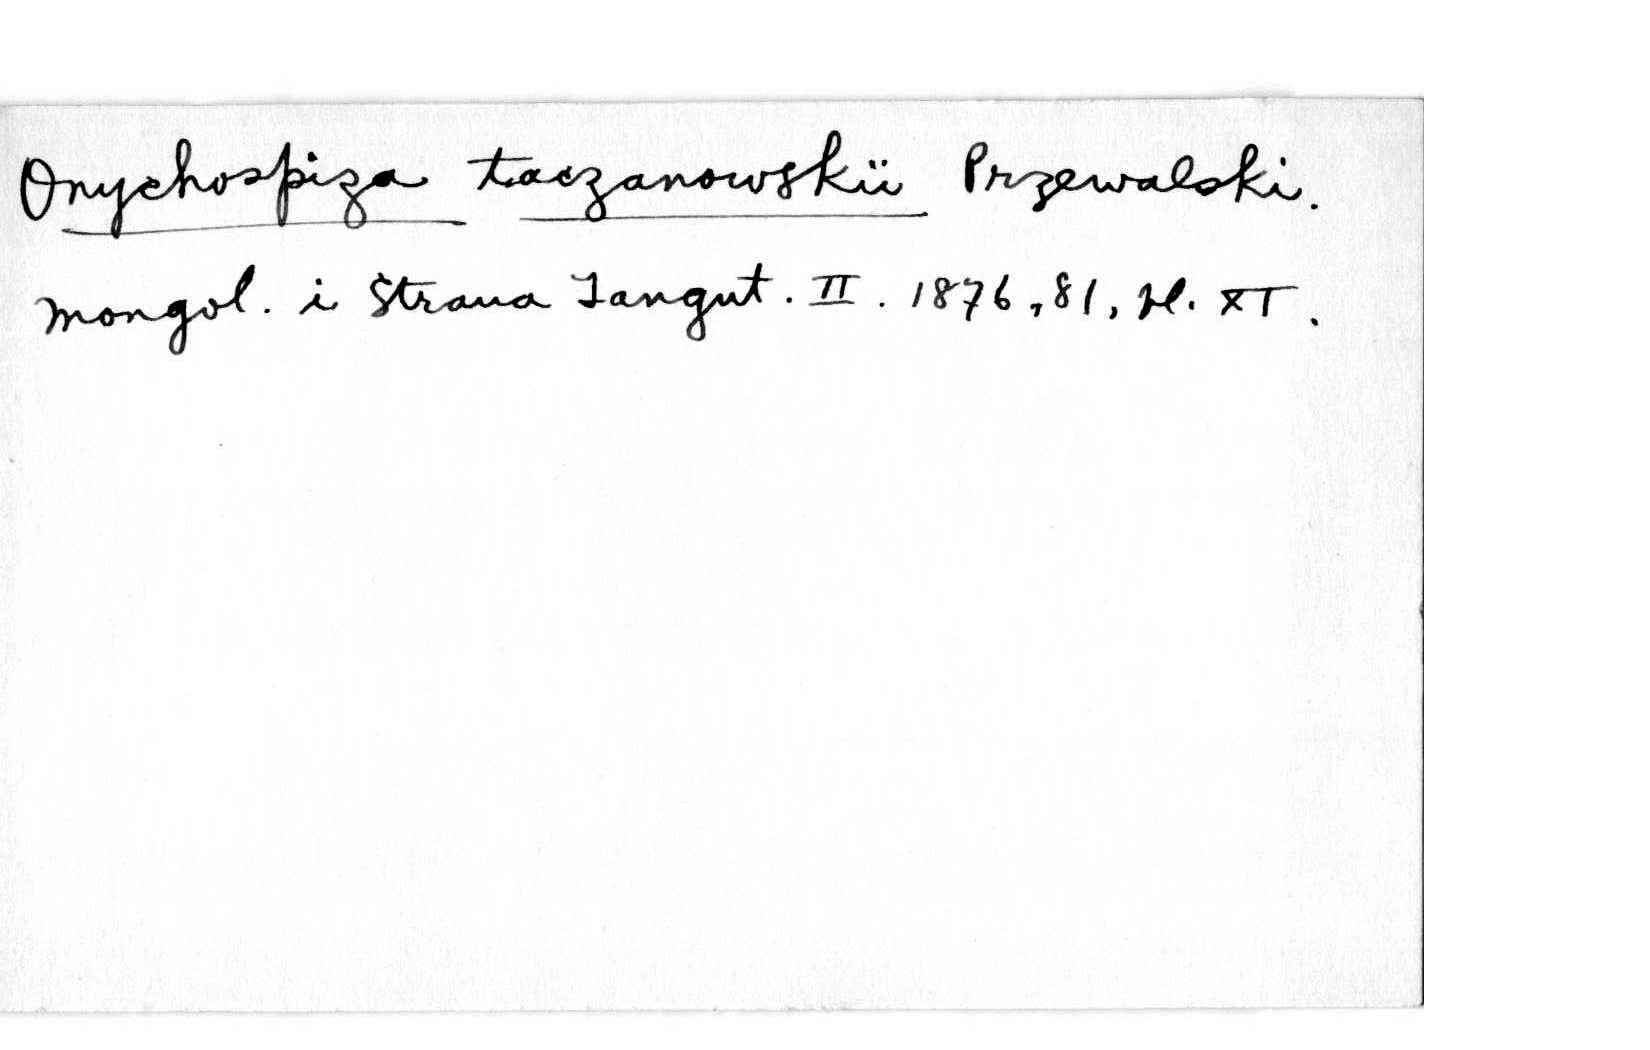 Onychospiza taczanowskii Przewalski.
Mongol. i Strana Tangut. II. 1876, 81, pl. XI.